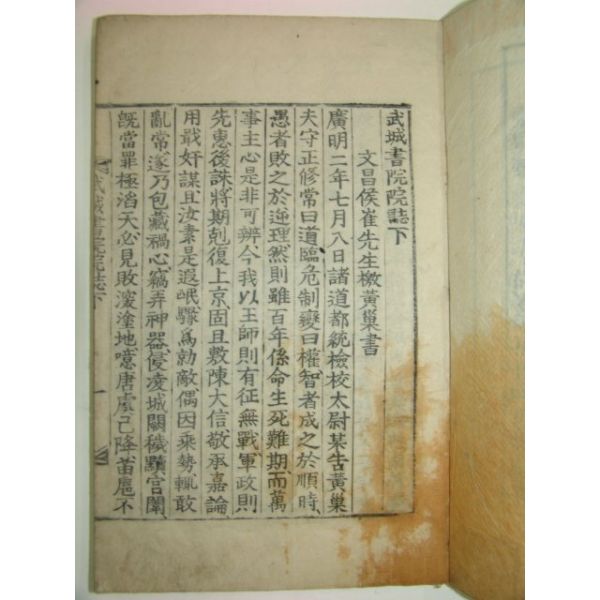 武城書院院誌下
文昌侯崔先生檄黃巢書
廣明二年七月八日諸道都統檢校太尉某告黃巢
夫守正修常曰道臨危制變曰權智者成之於順時
愚者敗之於逆理然則雖百年係命生死難期而萬
事主心是非可辨今我以王師則有征無戰軍政則
先惠後誅將期剋復上京固且敷陳大信敬承嘉論
用戢奸謀且汝素是遐氓驟爲勍敵偶因乘勢輒敢
亂常遂乃包藏禍心竊弄神器侵凌城闕穢黷宮闈
旣當罪極滔天必見敗深塗地噫唐虞已降苗扈不
武城書院院誌下 一